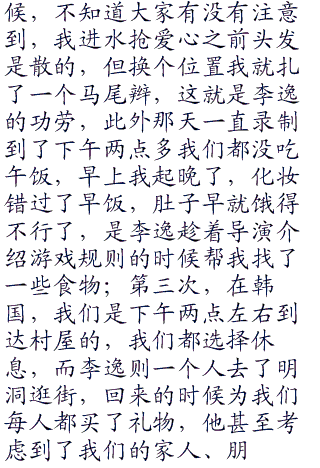 候，不知道大家有没有注意
到，我进水抢爱心之前头发
是散的，但换个位置我就扎
了一个马尾辫，这就是李逸
的功劳，此外那天一直录制
到了下午两点多我们都没吃
午饭，早上我起晚了，化妆
错过了早饭，肚子早就饿得
不行了，是李逸趁着导演介
绍游戏规则的时候帮我找了
一些食物；第三次，在韩
国，我们是下午两点左右到
达村屋的，我们都选择休
息，而李逸则一个人去了明
洞逛街，回来的时候为我们
每人都买了礼物，他甚至考
虑到了我们的家人、朋